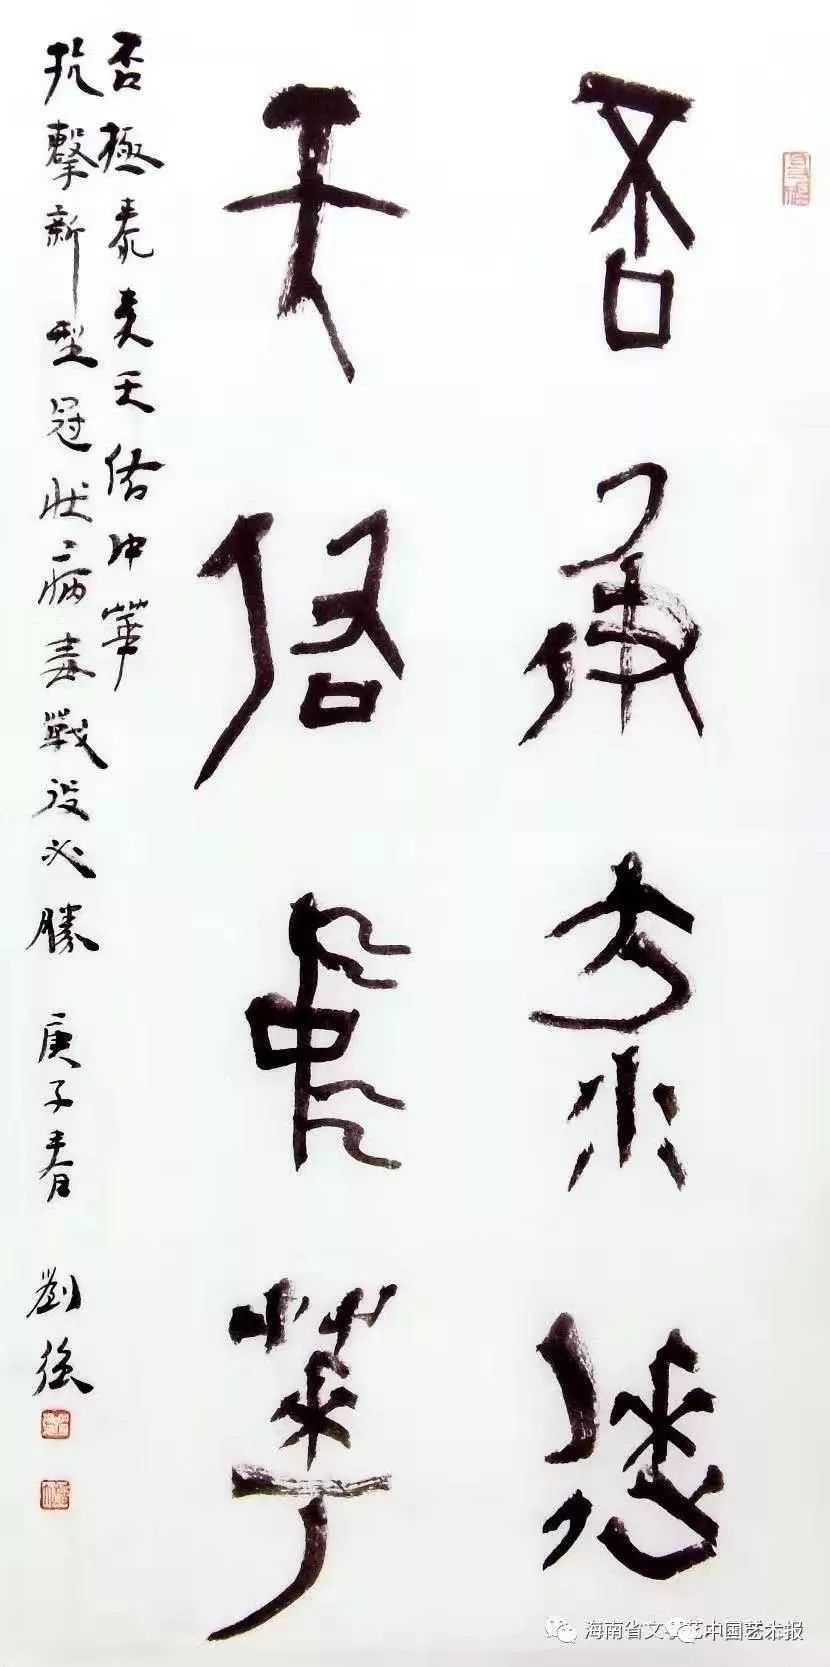 否極泰來
天佑中華
否極泰来天佑中華
抗擊新型冠狀病毒戰役必勝 庚子春 劉強
海南省文 艺中国艺术报